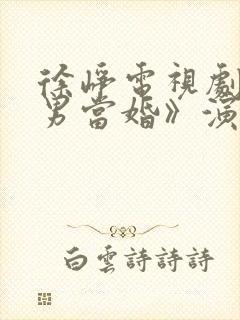 徐崢電視劇
男當婚》演
白雲詩詩詩